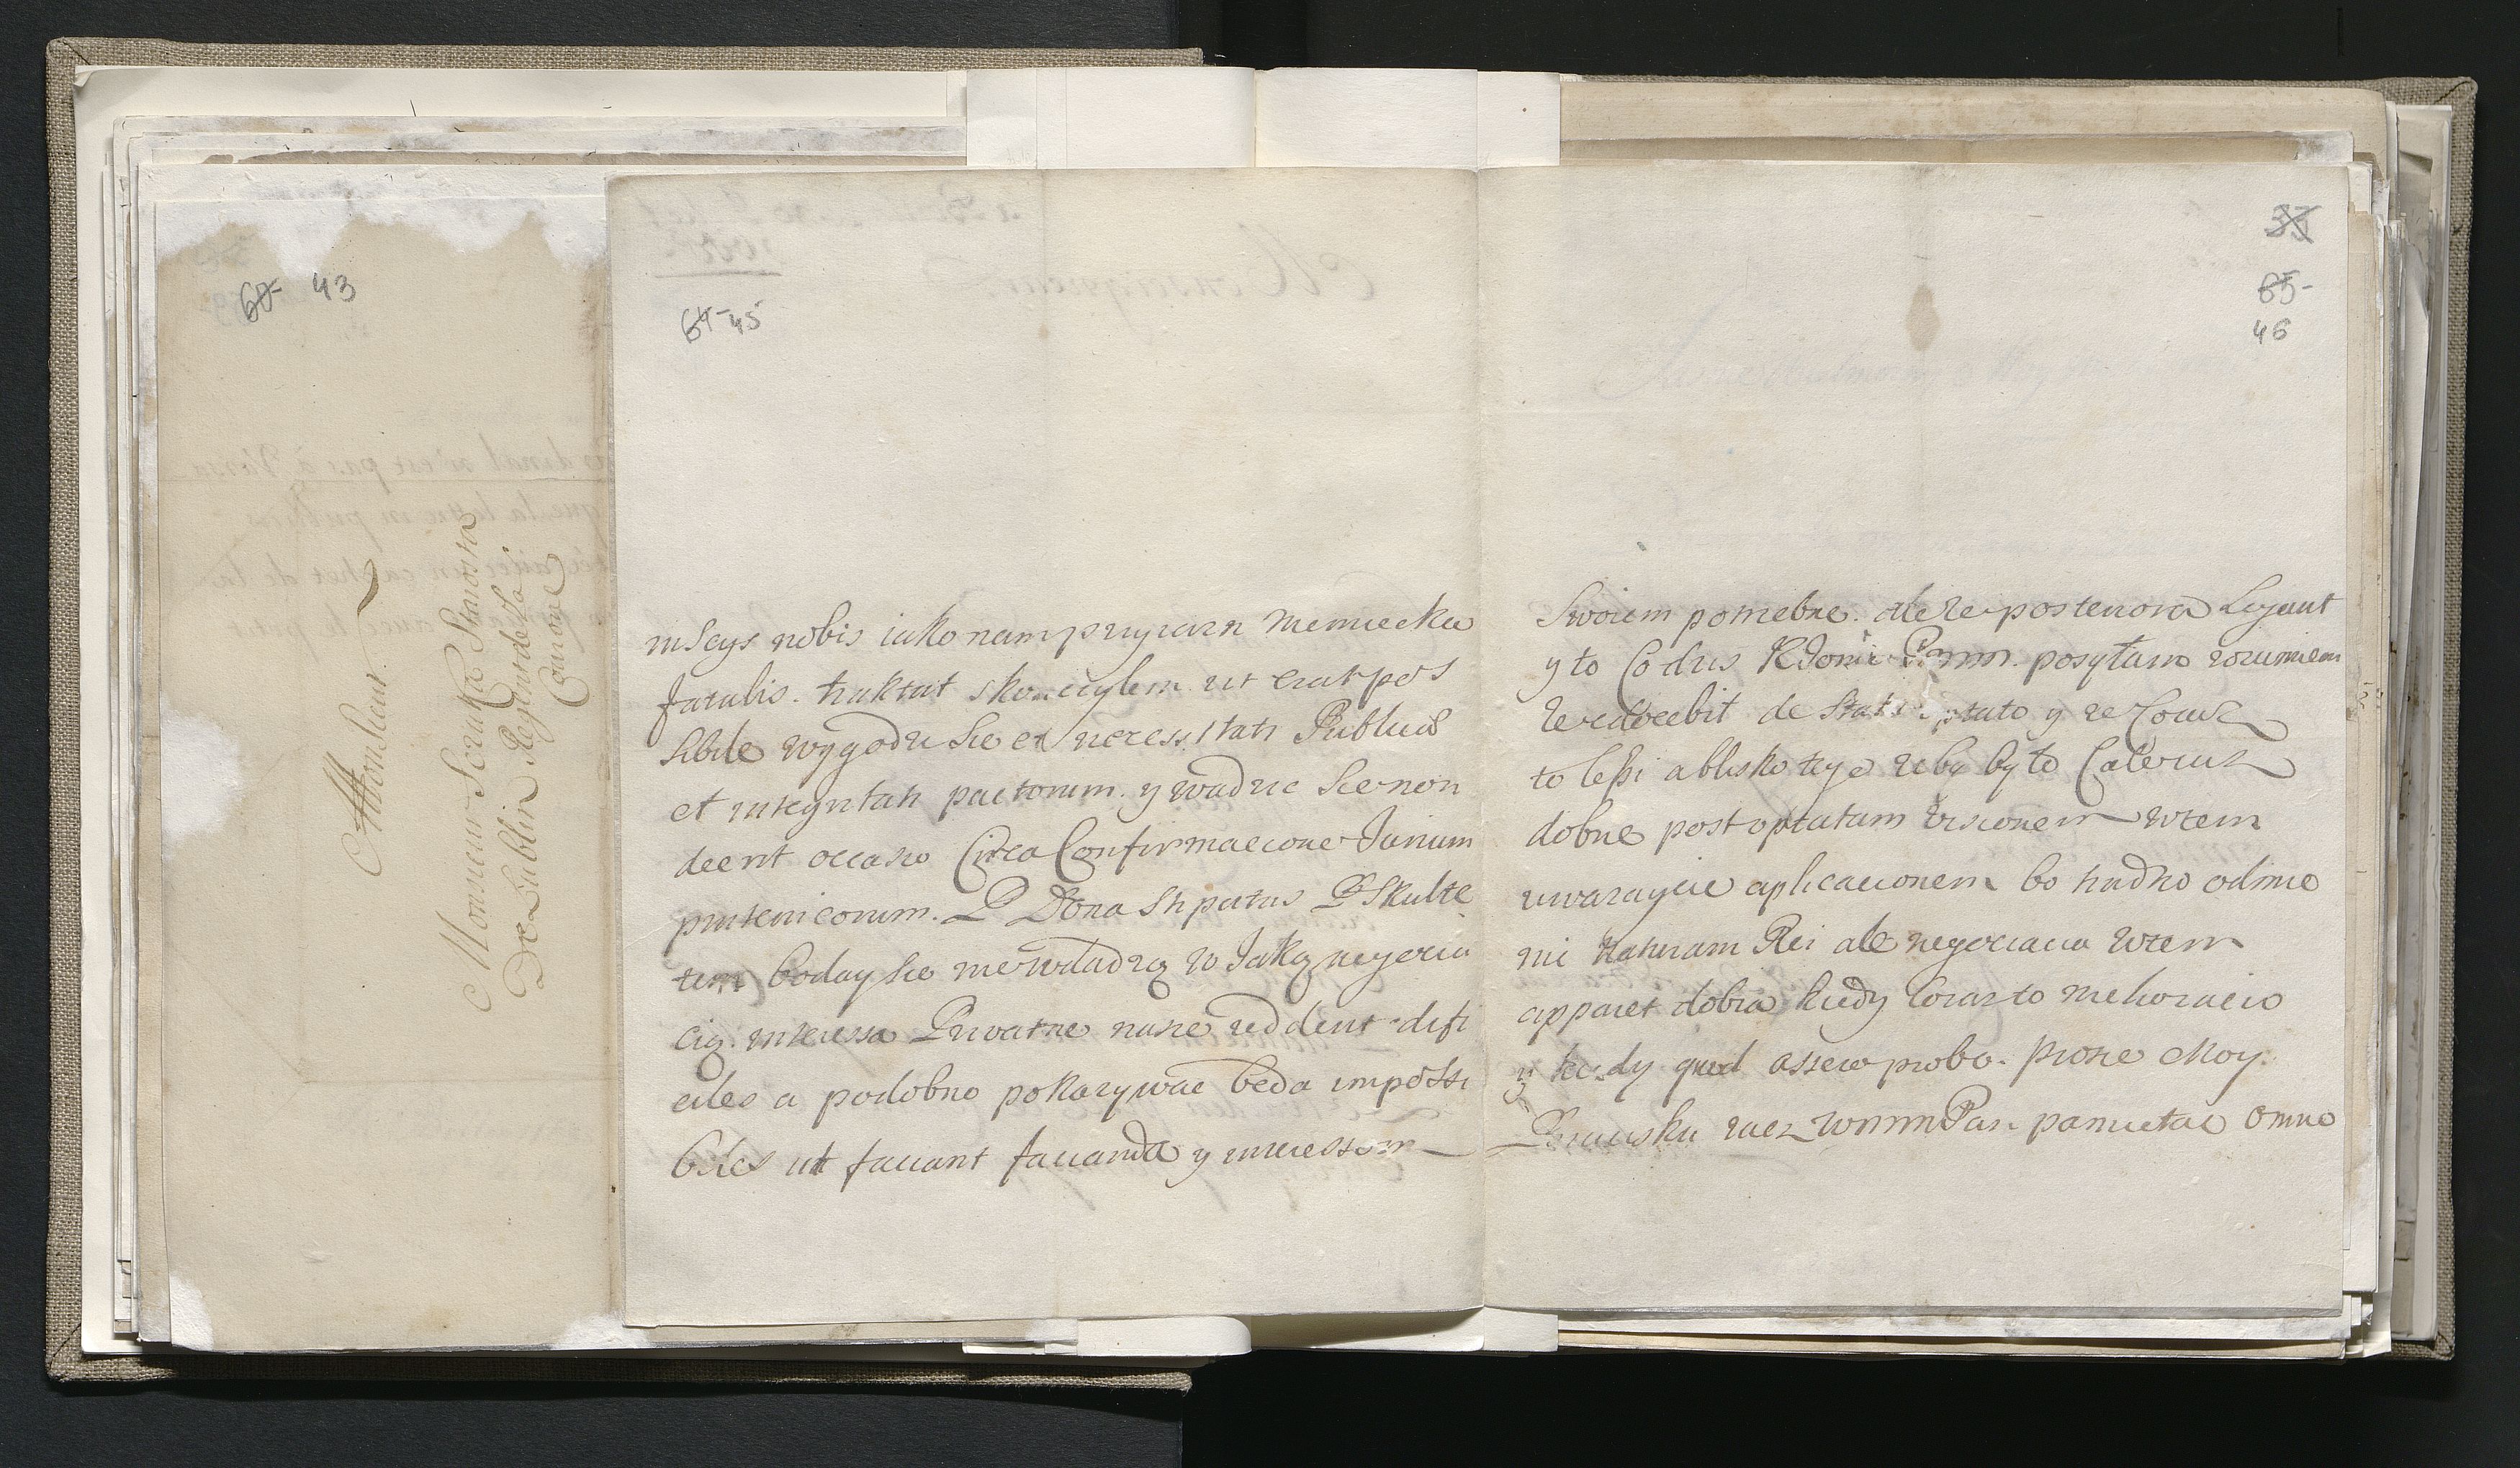 60- 43
Monsieur
Monsieur Sczuka Starosta
De Lublin Regent de la
Couronne
64- 45
inscys nobis iako nam przyiazn niemiecka
fatalis. traktat skonczylem ut erat pos
sibile wygodzi sie et necessitati Publicae
et integritati pactorum. y wadzic sie non
deerit occasio Circa Confirmacione Jurium
prutenicorum. P Dona stipatus P Skulte
tem boday sie nie wdadzą w Jaką negocia
cią. interessa Privatne nasze reddent difi
ciles a podobno pokazywac beda impossi
biles ut faciant facienda y interessom
33
65-
46
Swoiem potrzebne. ale ze posteriora Legunt
y to Co dzis KJomci posyłam rozumiem
ze edocebit de Statu y ze Coraz
to lepi a blisko tego zeby było Calecuz
dobrze post optatam visionem wtem
uwazaycie aplicacionem bo trudno odmie
nic naturam Rei ale negociacia wtem
apparet dobra kiedy Coraz to melioracio
y kiedy quod assero probo. prosze Moy
raez WMM Pan pamietac omne